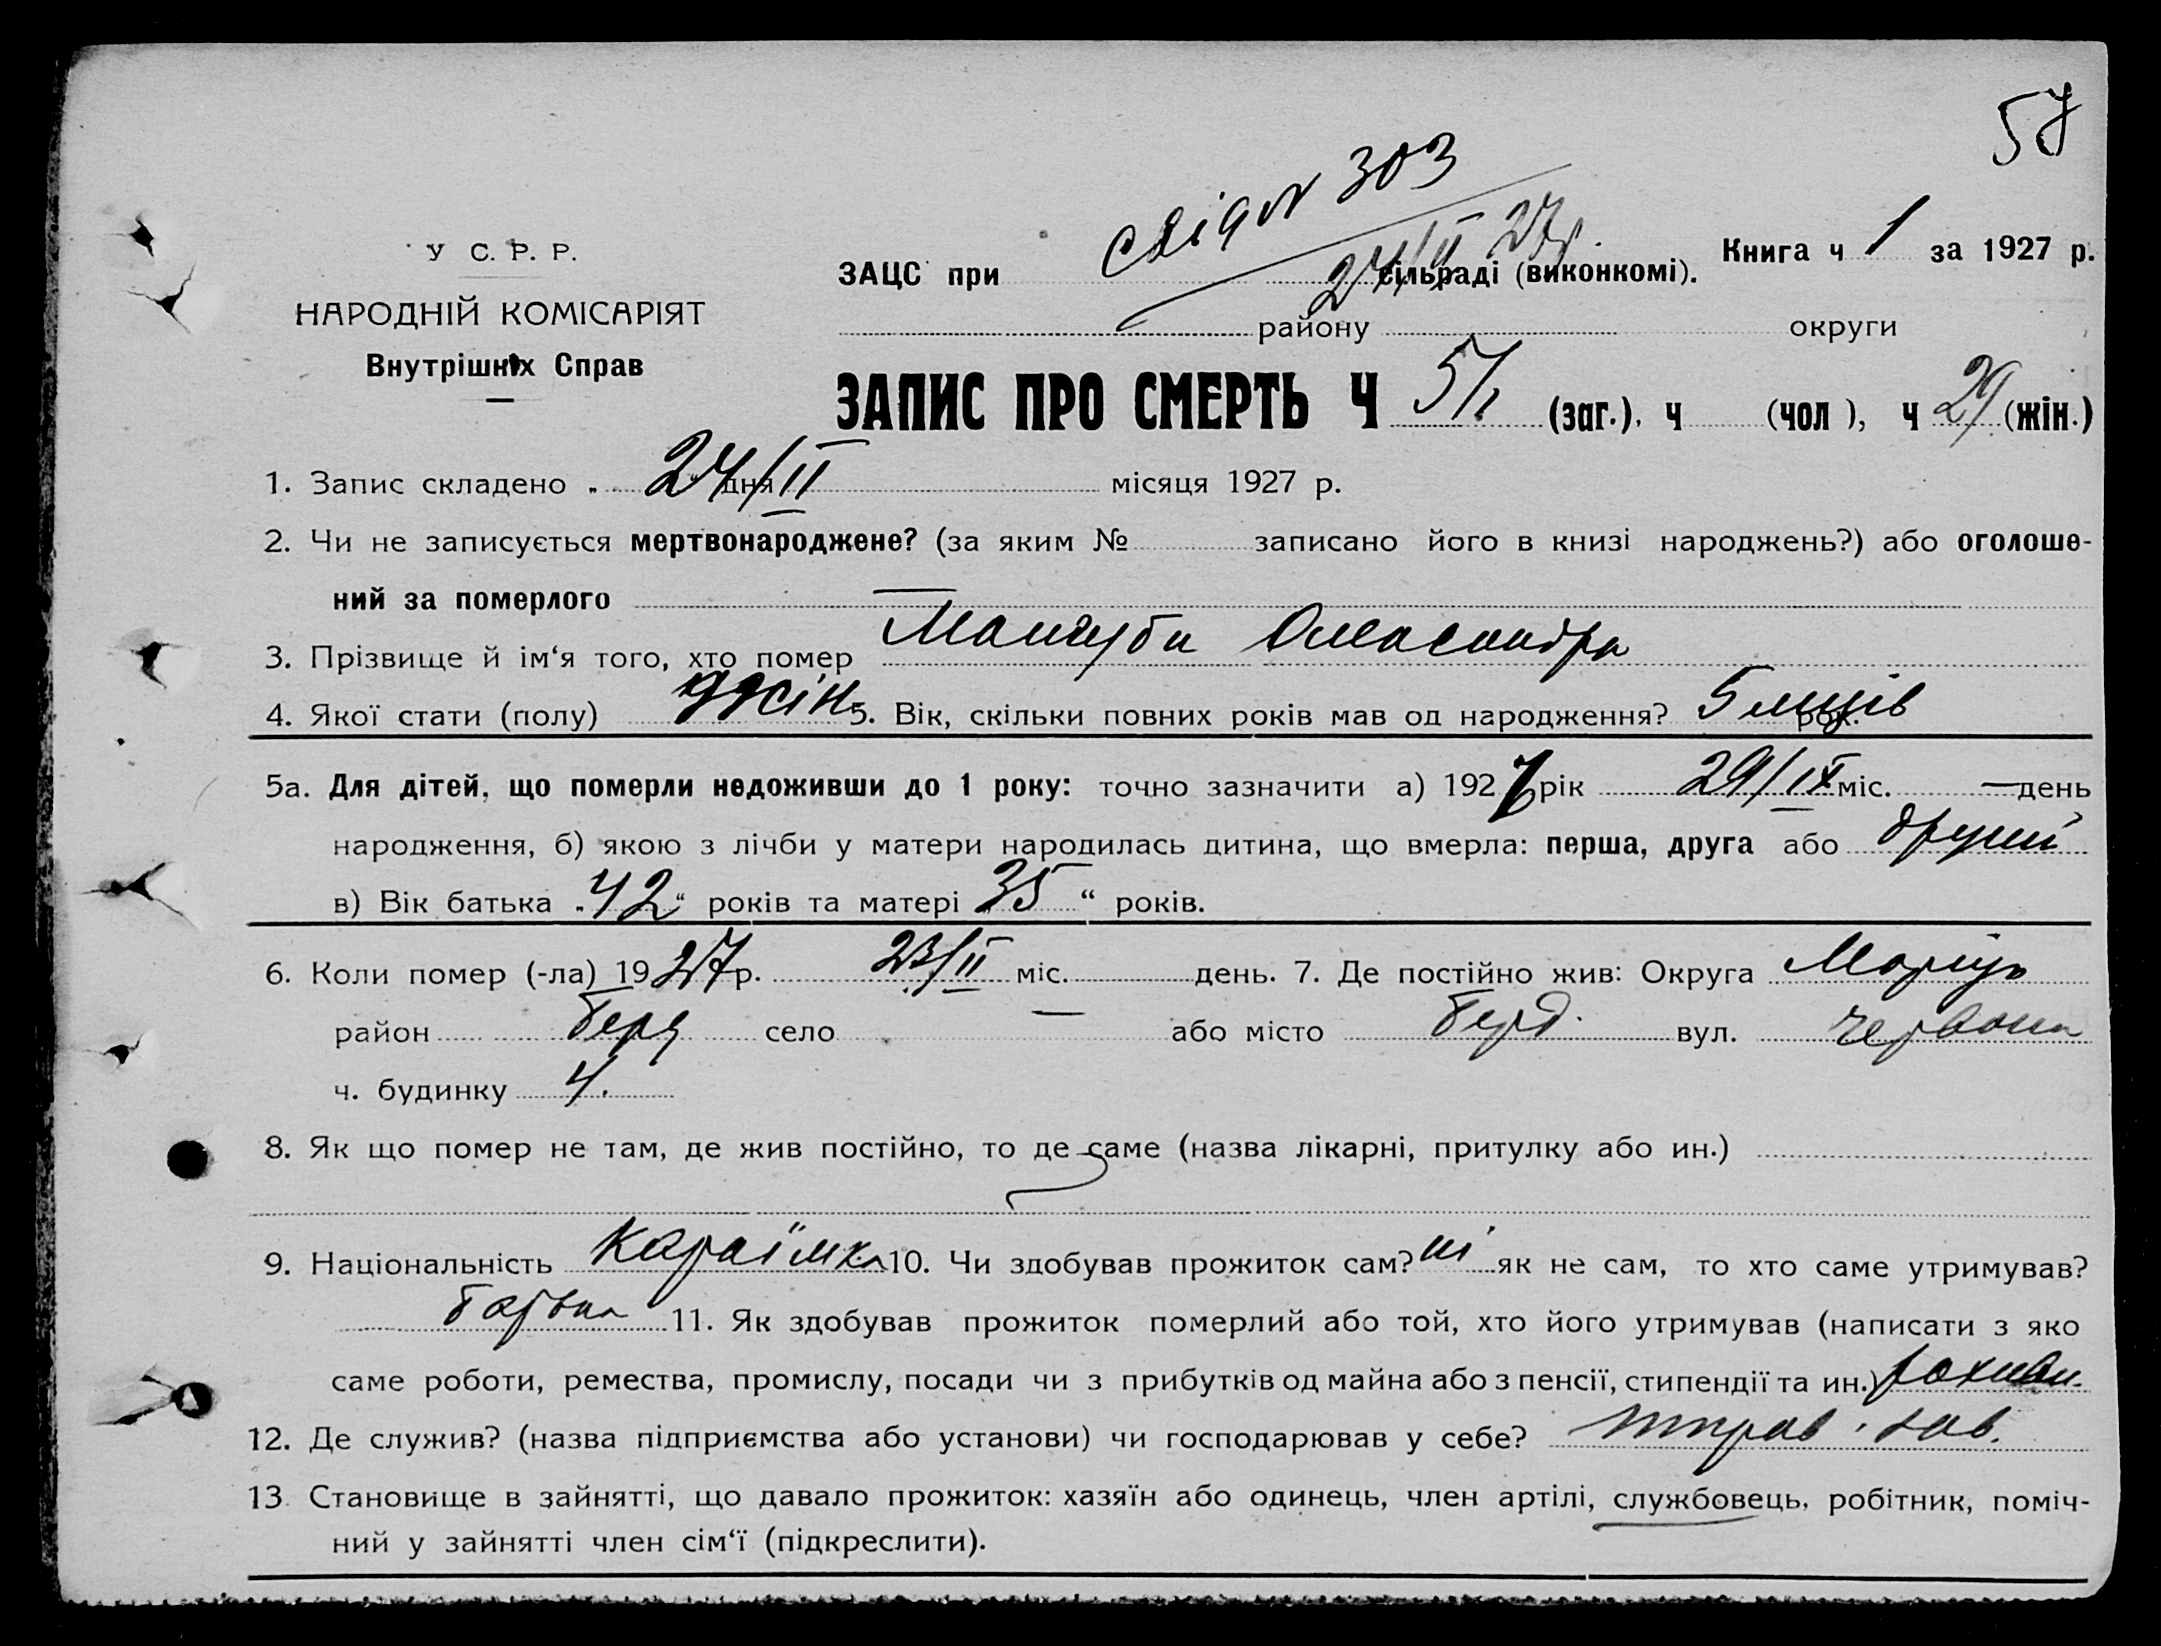 57
свідч 303
24/II 27 р.
У С. Р. Р.
НАРОДНІЙ КОМІСАРІЯТ
Внутрішніх Справ
ЗАЦС при сільраді (виконкомі). Книга ч 1 за 1927 р.
району округи
ЗАПИС ПРО СМЕРТЬ Ч (заг.), ч (чол ), ч 29 (жін.)
1. Запис складено „ 24/II " дня місяця 1927 р.
2. Чи не записується мертвонароджене? (за яким № записано його в книзі народжень?) або оголоше-
ний за померлого —
3. Прізвище й ім‘я того, хто помер Мангуби Олександра
4. Якої стати (полу) жін. 5. Вік, скільки повних років мав од народження? 5 місців рок.
5а. Для дітей, що померли недоживши до 1 року: точно зазначити а) 1926 рік 29/IX міс. — день
народження, б) якою з лічби у матери народилась дитина, що вмерла: перша, друга або
в) Вік батька „ 42 “ років та матері „ 35 “ років.
6. Коли помер (-ла) 1927 р. 23/II міс. день. 7. Де постійно жив: Округа Маріуп
район Берд село — або місто Берд. вул. Червона
ч. будинку 4.
8. Як що помер не там, де жив постійно, то де саме (назва лікарні, притулку або ин.)
9. Національність Караїмка 10. Чи здобував прожиток сам? ні як не сам, то хто саме утримував?
батько 11. Як здобував прожиток померлий або той, хто його утримував (написати з яко
саме роботи, ремества, промислу, посади чи з прибутків од майна або з пенсії, стипендії та ин.) рахівн.
12. Де служив? (назва підприємства або установи) чи господарював у себе? зав.
13 Становище в зайнятті, що давало прожиток: хазяїн або одинець, член артілі, службовець, робітник, поміч-
ний у зайнятті член сім‘ї (підкреслити).